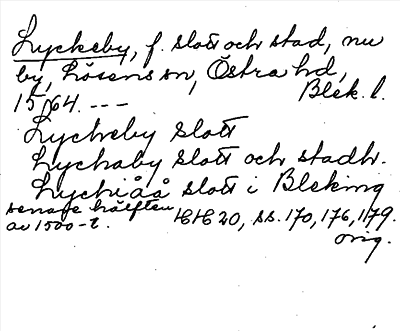 Lyckeby, f. slott och stad, nu
by, Lösens sn, Östra hd,
Blek. l.
15/64. ---
Lyckeby slott
Lyckaby slott och stadh.
Lyckiåå slott i Bleking
senare hälften
av 1500-t.
HH 20, ss. 170, 176, 179.
orig.